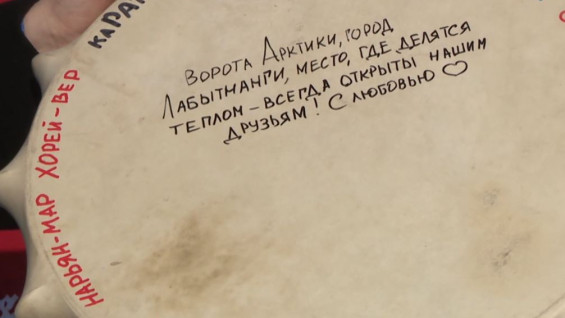 ВОРОТА АРКТИКИ, ГОРОД
ЛАБЫТНАНГИ, МЕСТО, ГДЕ ДЕЛЯТСЯ
ТЕПЛОМ – ВСЕГДА ОТКРЫТЫ НАШИМ
ДРУЗЬЯМ! С ЛЮБОВЬЮ ♡
НАРЬЯН-МАР ХОРЕЙ-ВЕР